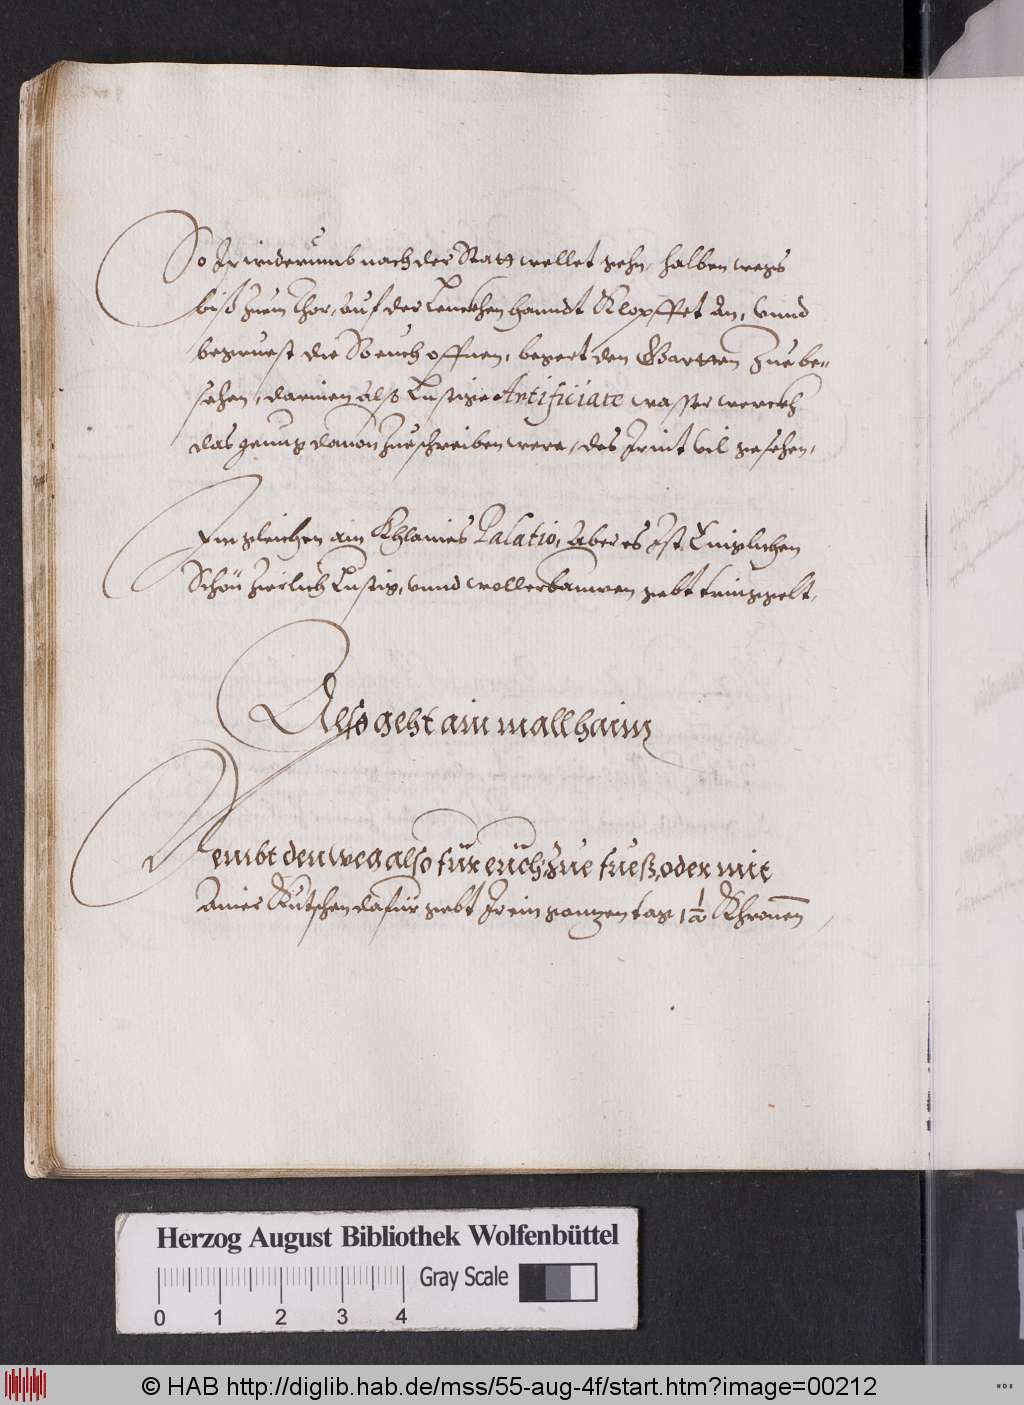 So Ir widerumb nach der Statt wellet gehn, halben wegs
biß zum Thor, auf der Lenckhen hanndt Klopffet An, Vnnd
begruest die So euch offnen, begert den Gartten zue be-
sehen, darinen also Lustige Artificiate wasser werckh
das genug dauon zueschreiben were, des Ir nit vil gesehen,
Im gleichen ain Khlaines Palatio, aber es ist Kuniglichen
Schön Zierlich Lustig, vnnd woll erbauwen gebt tringgelt,
Also geht ain mall haim
Nembt den weg also für eüch zue fueß, oder mit
Ainer Kutschen dafür gebt Ir ein gantzen tag 1 1/2 Khronen
Herzog August Bibliothek Wolfenbüttel
Gray Scale
0 1 2 3 4
© HAB http://diglib.hab.de/mss/55-aug-4f/start.htm?image=00212